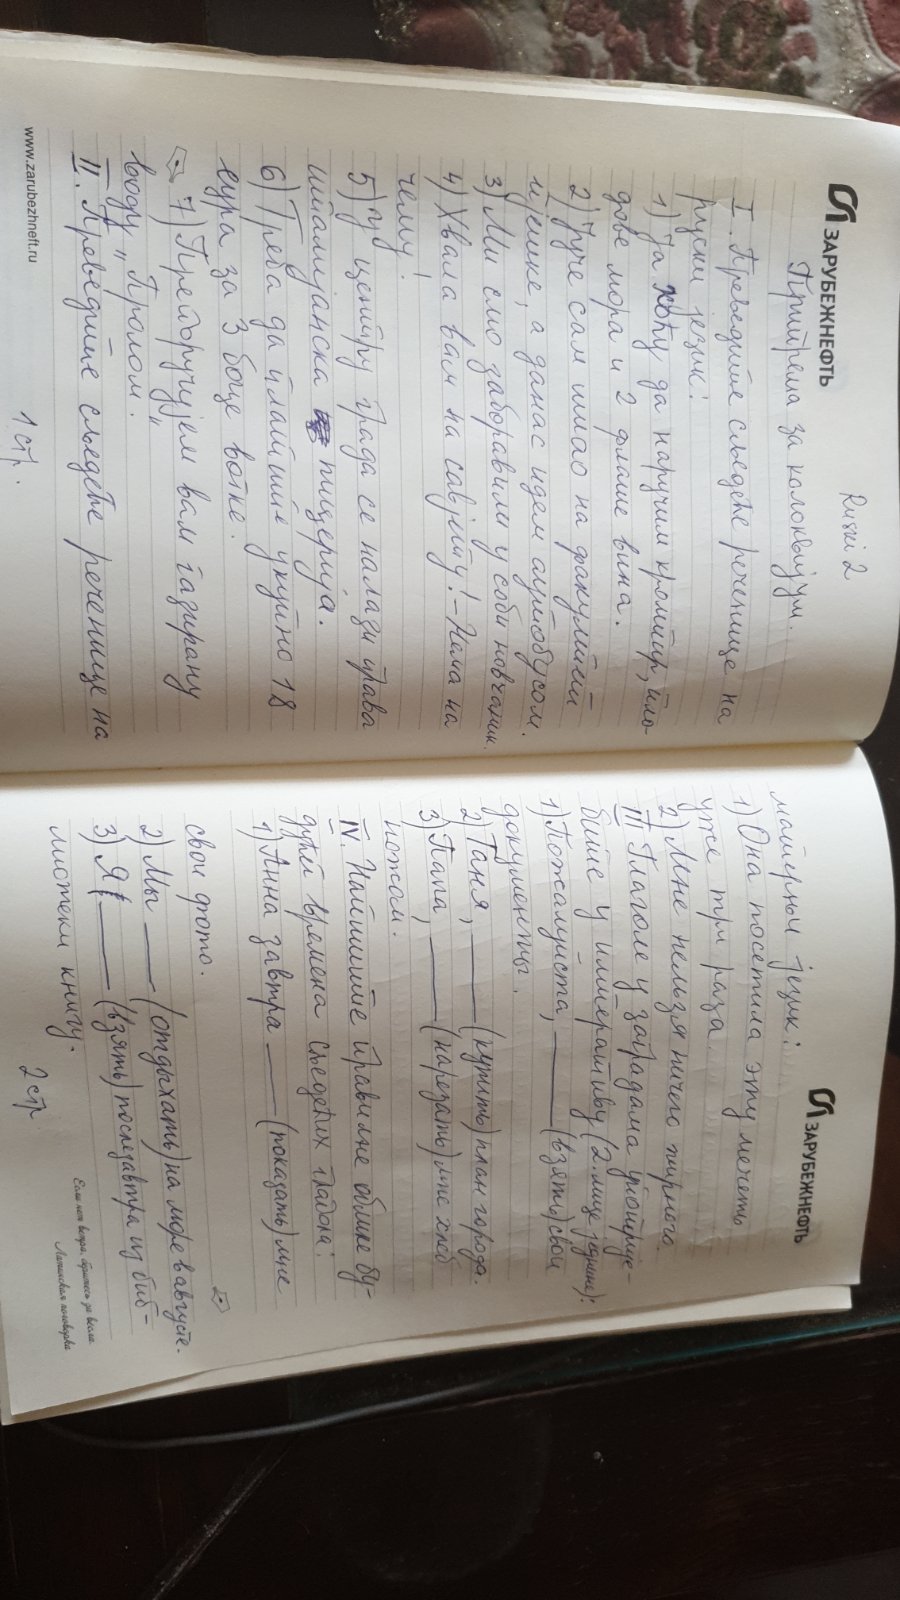 ЗАРУБЕЖНЕФТЬ
Ruski 2
Припрема за колоквијум.
I. Преведите сљедеће реченице на
руски језик:
1) Ја хоћу да наручим кромпир, пло-
дове мора и 2 флаше вина.
2) Јуче сам ишао на факултет
пјешке, а данас идем аутобусом.
3) Ми смо заборавили у соби новчаник.
4) Хвала вам на савјету! – Нема на
чему!
5) У центру града се налази права
италијанска пицерија.
6) Треба да платите укупно 18
еура за 3 боце вотке.
7) Препоручујем вам газирану
воду „Пролом“.
II. Преведите сљедеће реченице на
1 стр.
www.zarubezhneft.ru
ЗАРУБЕЖНЕФТЬ
матерњи језик:
1) Она посетила эту мечеть
уже три раза.
2) Мне нельзя ничего жирного.
III Глаголе у заградама употрије-
бите у императиву (2. лице једнине):
1) Пожалуйста, ___ (взять) свои
документы.
2) Таня, ___ (купить) план города.
3) Папа, ___ (нарезать) мне хлеб
ножом.
IV. Напишите правилне облике бу-
дућег времена сљедећих глагола:
1) Анна завтра ___ (показать) мне
свои фото.
2) Мы ___ (отдыхать) на море в августе.
3) Я ___ (взять) послезавтра из биб-
лиотеки книгу.
2 стр
Если нет ветра, беритесь за весла.
Латинская поговорка